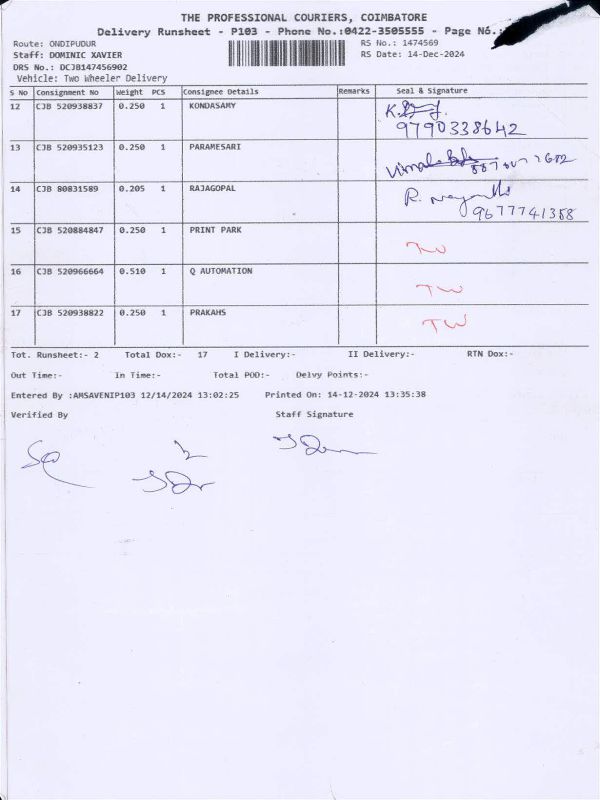 THE PROFESSIONAL COURIERS, COIMBATORE
Delivery Runsheet - P103 - Phone No.:0422-3505555 - Page No.:
Route: ONDIPUDUR RS No.: 1474569
Staff: DOMINIC XAVIER RS Date: 14-Dec-2024
DRS No.: DCJB147456902
Vehicle: Two Wheeler Delivery
S No Consignment No Weight PCS Consignee Details Remarks Seal & Signature
12 CJB 520938837 0.250 1 KONDASAMY
9790338642
13 CJB 520935123 0.250 1 PARAMESARI
14 CJB 80831589 0.205 1 RAJAGOPAL R.
9677741358
15 CJB 520884847 0.250 1 PRINT PARK TW
16 CJB 520966664 0.510 1 Q AUTOMATION TW
17 CJB 520938822 0.250 1 PRAKAHS TW
Tot. Runsheet:- 2 Total Dox:- 17 I Delivery:- II Delivery:- RTN Dox:-
Out Time:- In Time:- Total POD:- Delvy Points:-
Entered By :AMSAVENIP103 12/14/2024 13:02:25 Printed On: 14-12-2024 13:35:38
Verified By Staff Signature